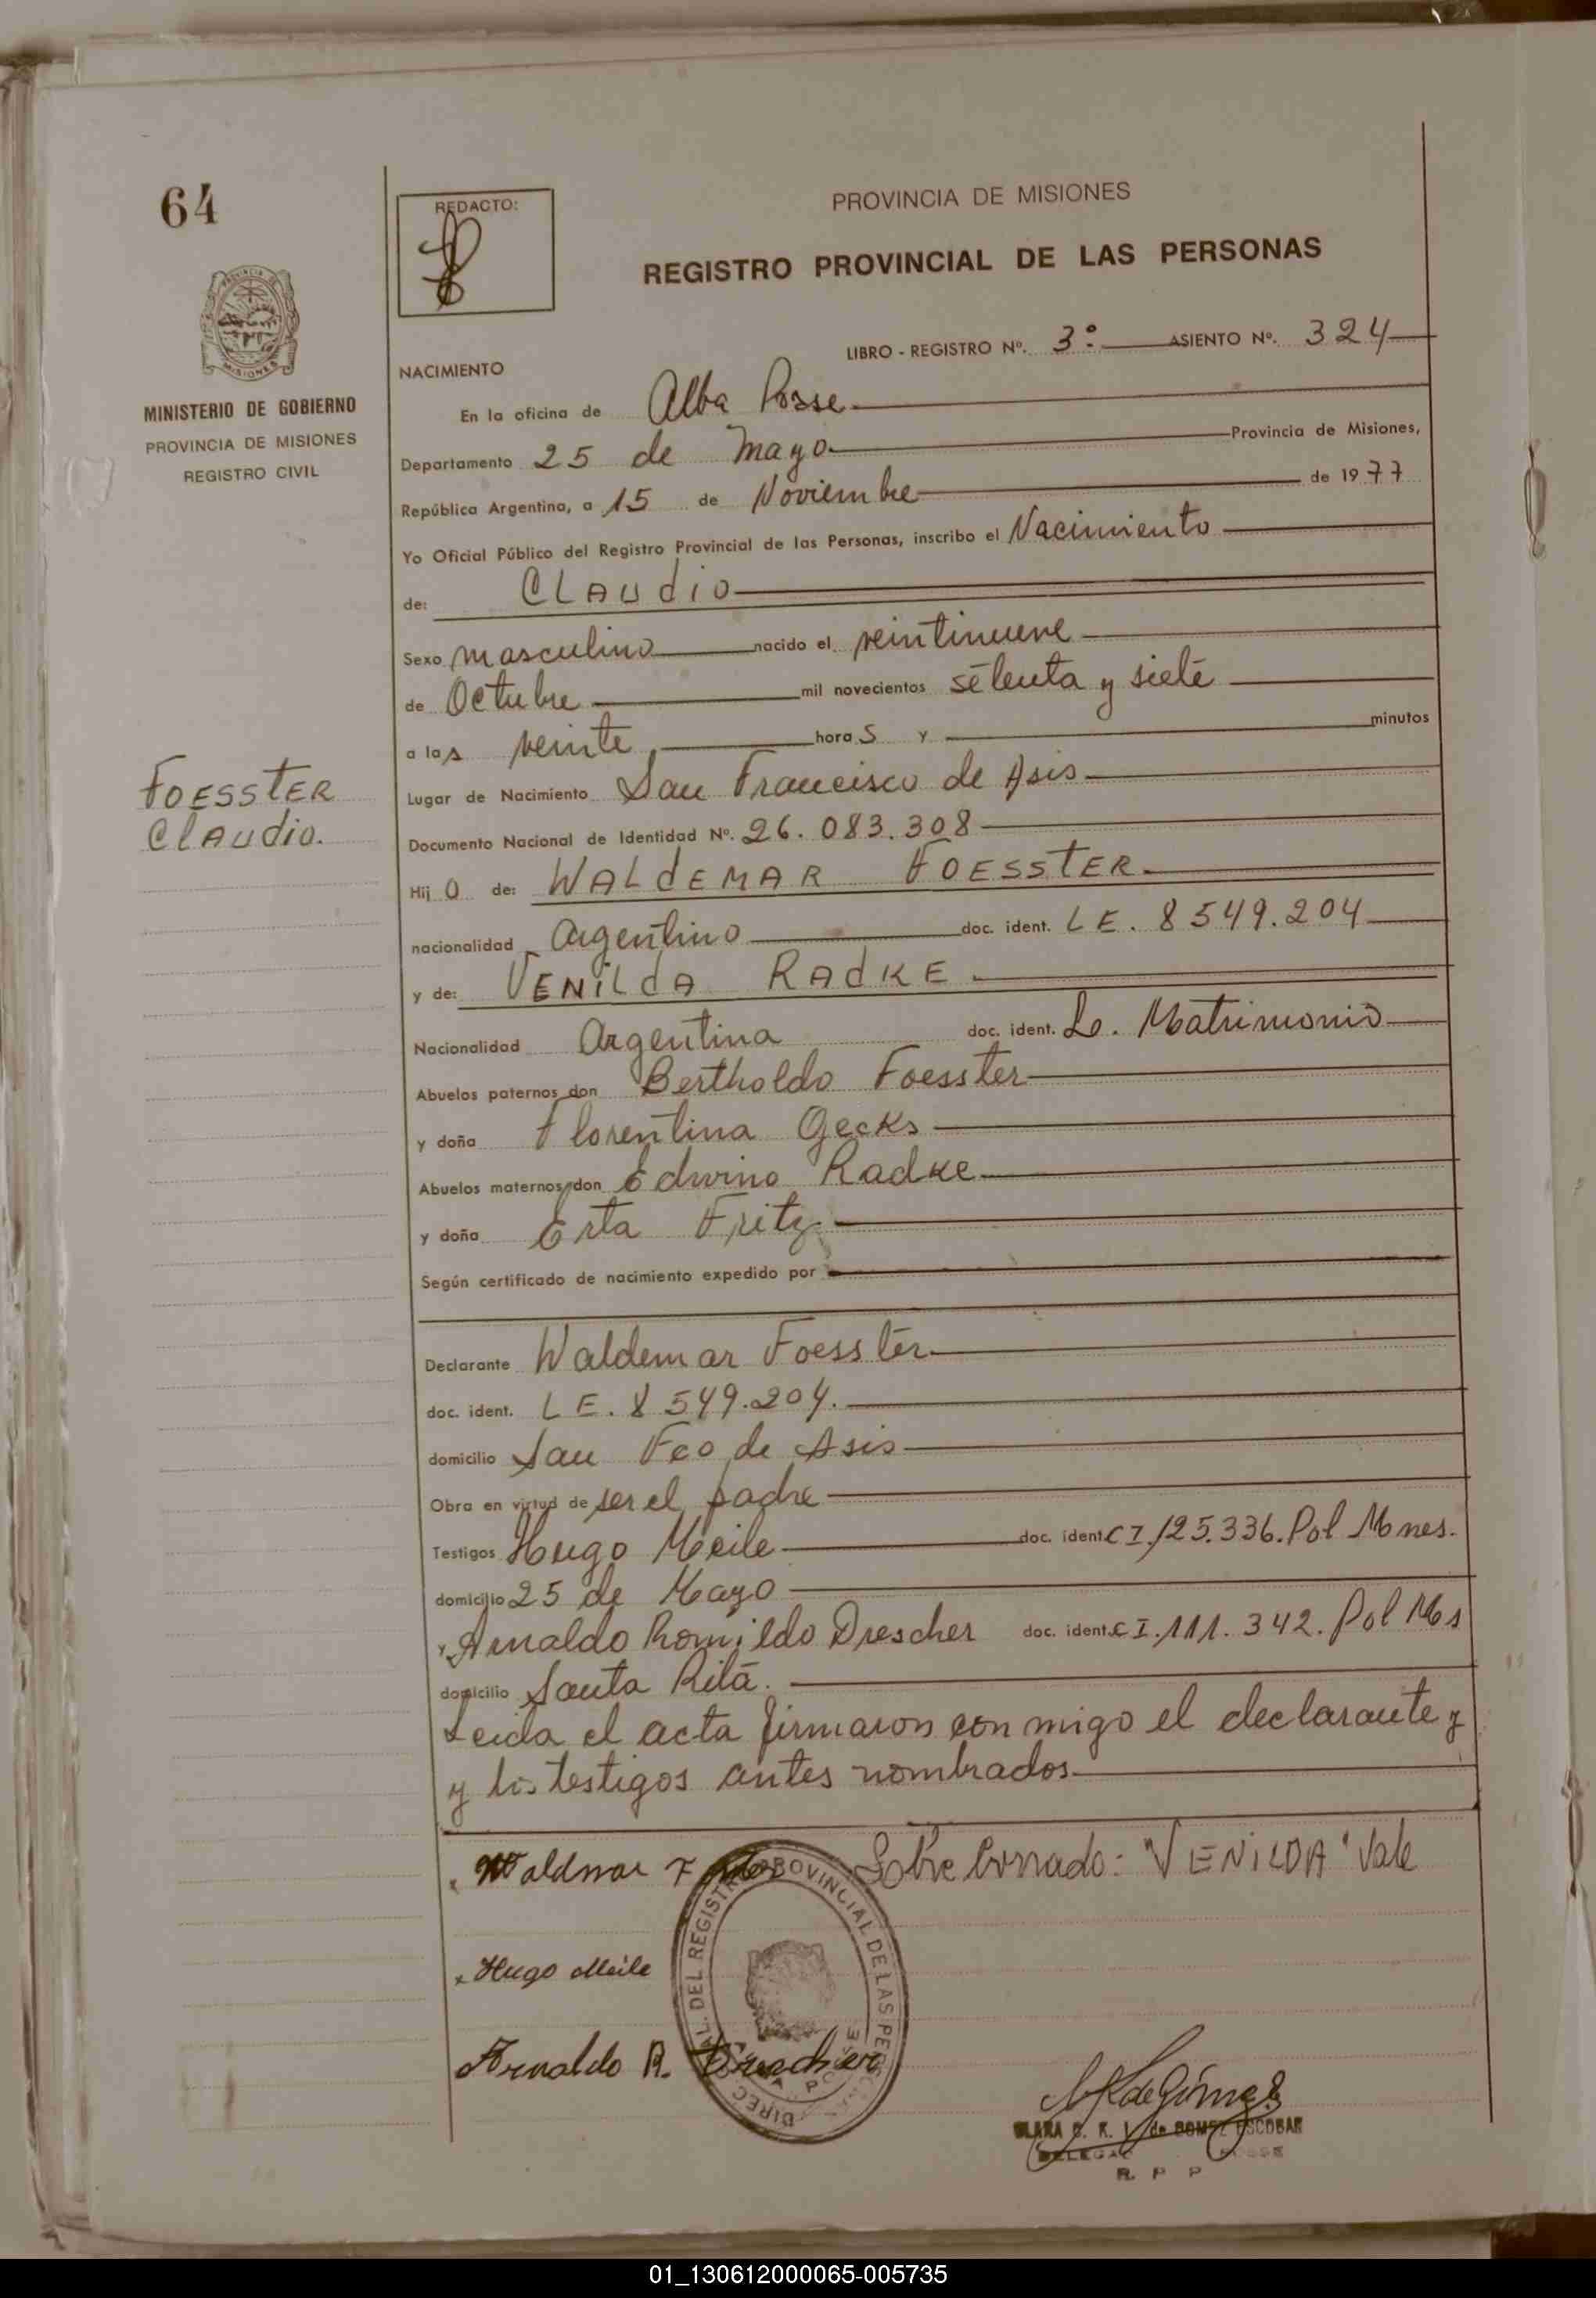 64
REDACTO:
PROVINCIA DE MISIONES
REGISTRO PROVINCIAL DE LAS PERSONAS
MINISTERIO DE GOBIERNO
PROVINCIA DE MISIONES
REGISTRO CIVIL
LIBRO - REGISTRO Nº. 3º ASIENTO Nº. 324
NACIMIENTO
En la oficina de Alba Posse
Departamento 25 de Mayo Provincia de Misiones,
República Argentina, a 15 de Noviembre de 1977
Yo Oficial Público del Registro Provincial de las Personas, inscribo el Nacimiento
de: CLAUdio
Sexo masculino nacido el veintinueve
de Octubre mil novecientos setenta y siete
a las veinte horas y minutos
FOESSTER
CLAUdio.
Lugar de Nacimiento San Francisco de Asis
Documento Nacional de Identidad Nº. 26.083.308
Hijo de: WALdEMAR FOESSTER
nacionalidad Argentino doc. ident. LE. 8549.204
y de: VENILdA RAdKE
Nacionalidad Argentina doc. ident. Lo. Matrimonio
Abuelos paternos don Bertholdo Foesster
y doña Florentina Gecks
Abuelos maternos don Edwino Radke
y doña Erta Fritz
Según certificado de nacimiento expedido por
Declarante Waldemar Foesster
doc. ident. LE. 8549.204.
domicilio San Fco de Asis
Obra en virtud de ser el padre
Testigos Hugo Meile doc. ident. CI. 125.336. Pol Mnes.
domicilio 25 de Mayo
y Arnaldo Romildo Drescher doc. ident. CI. 111.342. Pol Mns
domicilio Santa Rita.
Leida el acta firmaron con migo el declarante y
y los testigos antes nombrados
Waldmar F Sobre borrado: "VENILDA" Vale
DIREC. DEL REGISTRO PROVINCIAL DE LAS PERSONAS
Hugo Meile
Arnaldo R. Drescher
de GOMEZ ESCOBAR
R. P. P
01_130612000065-005735